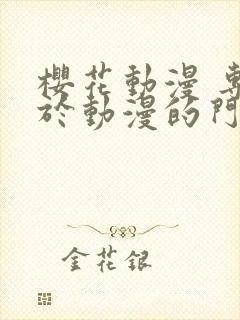 櫻花動漫 專
於動漫的門
金花銀